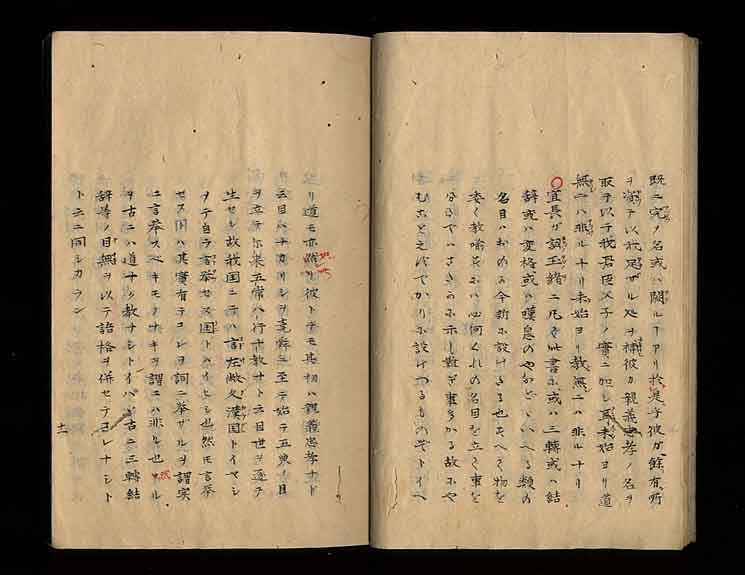 既ニ定ノ名或ハ闕ルヿアリ於是乎彼ガ餘有所
ヲ以我足ザル処ヲ補彼カ親義忠孝ノ名ヲ
取ヲ以テ我君臣父子ノ實ニ加レ耳未始ヨリ道
無ニハ非ルナリ未始ヨリ教無ニハ非ルナリ
宣長ガ詞玉緒ニ凡テ此書ニ或ハ三轉或ハ結
辞或ハ変格或ハ嘆息のやなどといへる類の
名目ハおのが今新ニ設けたる也そへて物を
委く教喩さんにハ必何くれの名目を立て事を
わかでハさきらニ示し難ぎ事多かる故にや
むことえぬでかりに設けつるものぞトイヘ
リ道モ亦彼トテモ其初ハ親義忠孝ナド
云目ハナカリシヲ堯舜ニ至テ始テ五典ノ目
ヲ立テ尓来五常ハ行ヤ教ナト云目世ヲ逐テ
生セシ故我国ニテハ言左漢国トイヤシ
ヲテ自ラ言挙セス国トハイヒシ也然モ言挙
セス国ハ其實有テコレヲ詞ニ挙ザルヲ謂実
ニ言挙スベキモノナキヲ謂ニハ非ル也
ヲ古ニハ道ナク教ナシトイハバ古ニ三轉結
辞等ノ目無ヲ以テ語格ヲ併セテコレナシト
ト云ニ同シカラン
十一